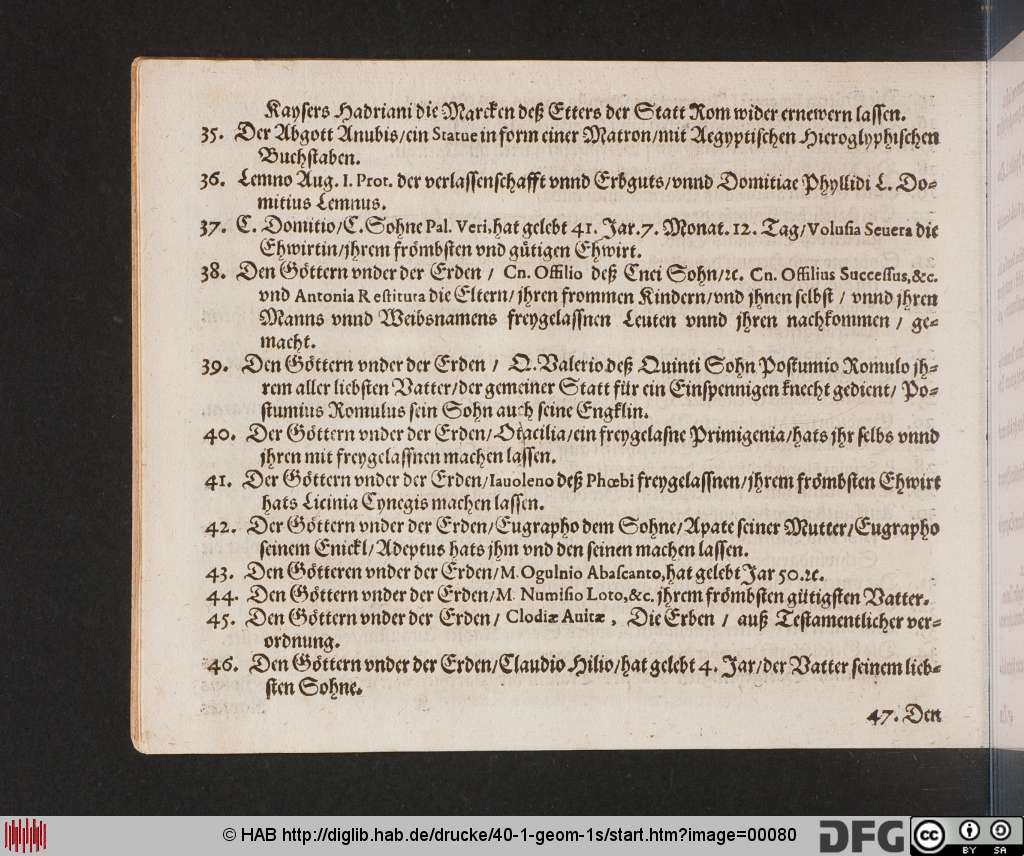 Kaysers Hadriani die Marcken deß Etters der Statt Rom wider ernewern lassen.
35. Der Abgott Anubis/ein Statue in form einer Matron/mit Aegyptischen Hieroglyphischen
Buchstaben.
36. Lemno Aug. I. Prot. der verlassenschafft vnnd Erbguts/vnnd Domitiae Phyllidi L. Do-
mitius Lemnus.
37. C. Domitio/C. Sohne Pal. Veri, hat gelebt 41. Jar. 7. Monat. 12. Tag/Volusia Seuera die
Ehwirtin/jhrem frömbsten vnd gütigen Ehwirt.
38. Den Göttern vnder der Erden / Cn. Offilio deß Cnei Sohn/ꝛc. Cn. Offilius Successus,&c.
vnd Antonia Restituta die Eltern/ jhren frommen Kindern/vnd jhnen selbst / vnnd jhren
Manns vnnd Weibsnamens freygelassnen Leuten vnnd jhren nachkommen / ge-
macht.
39. Den Göttern vnder der Erden / Q. Valerio deß Quinti Sohn Postumio Romulo jh-
rem aller liebsten Vatter/der gemeiner Statt für ein Einspennigen knecht gedient/ Po-
stumius Romulus sein Sohn auch seine Engklin.
40. Der Göttern vnder der Erden/Otacilia/ein freygelasne Primigenia/hats jhr selbs vnnd
jhren mit freygelassnen machen lassen.
41. Der Göttern vnder der Erden/Iauoleno deß Phœbi freygelassnen/jhrem frömbsten Ehwirt
hats Licinia Cynegis machen lassen.
42. Der Göttern vnder der Erden/Eugrapho dem Sohne/Apate seiner Mutter/Eugrapho
seinem Enickl/Adeptus hats jhm vnd den seinen machen lassen.
43. Den Götteren vnder der Erden/M. Ogulnio Abascanto, hat gelebt Jar 50. ꝛc.
44. Den Göttern vnder der Erden/M. Numisio Loto,&c. jhrem frömbsten gütigsten Vatter.
45. Den Göttern vnder der Erden/ Clodiæ Auitæ, Die Erben / auß Testamentlicher ver-
ordnung.
46. Den Göttern vnder der Erden/Claudio Hilio/hat gelebt 4. Jar/der Vatter seinem lieb-
sten Sohne.
47. Den
© HAB http://diglib.hab.de/drucke/40-1-geom-1s/start.htm?image=00080
DFG
cc BY SA